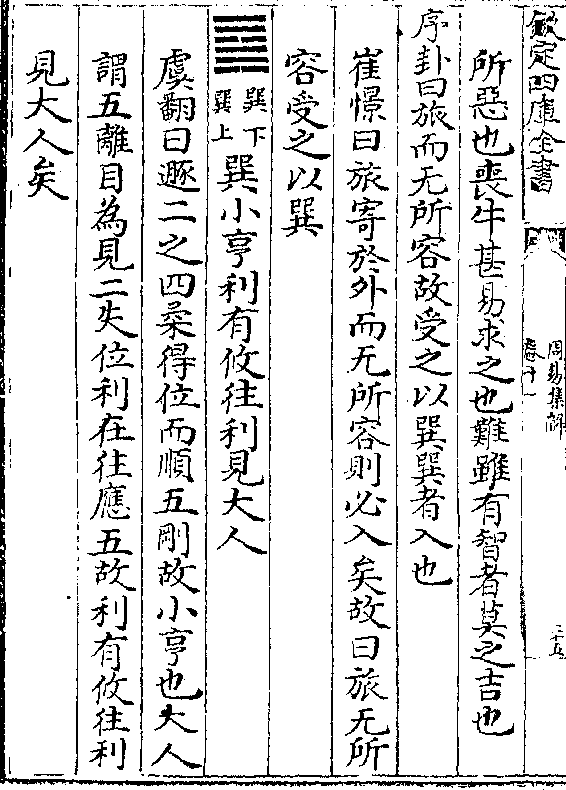 欽定四庫全書
周易集解
卷十一
三十五
所惡也喪牛甚易求之也難雖有智者莫之吉也
序卦曰旅而无所容故受之以巽巽者入也
崔憬曰旅寄於外而无所容則必入矣故曰旅无所
容受之以巽
䷸
巽下
巽上
巽小亨利有攸往利見大人
虞翻曰遯二之四柔得位而順五剛故小亨也大人
謂五離目為見二失位利在往應五故利有攸往利
見大人矣